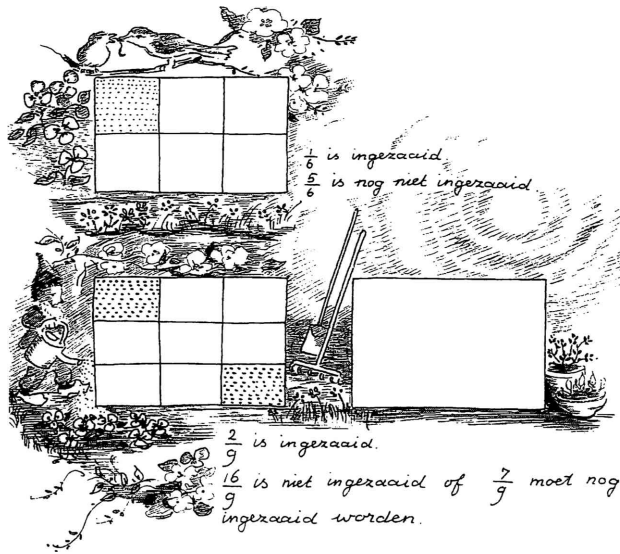 1/6 is ingezaaid.
5/6 is nog niet ingezaaid
2/9 is ingezaaid.
16/9 is niet ingezaaid of 7/9 moet nog
ingezaaid worden.